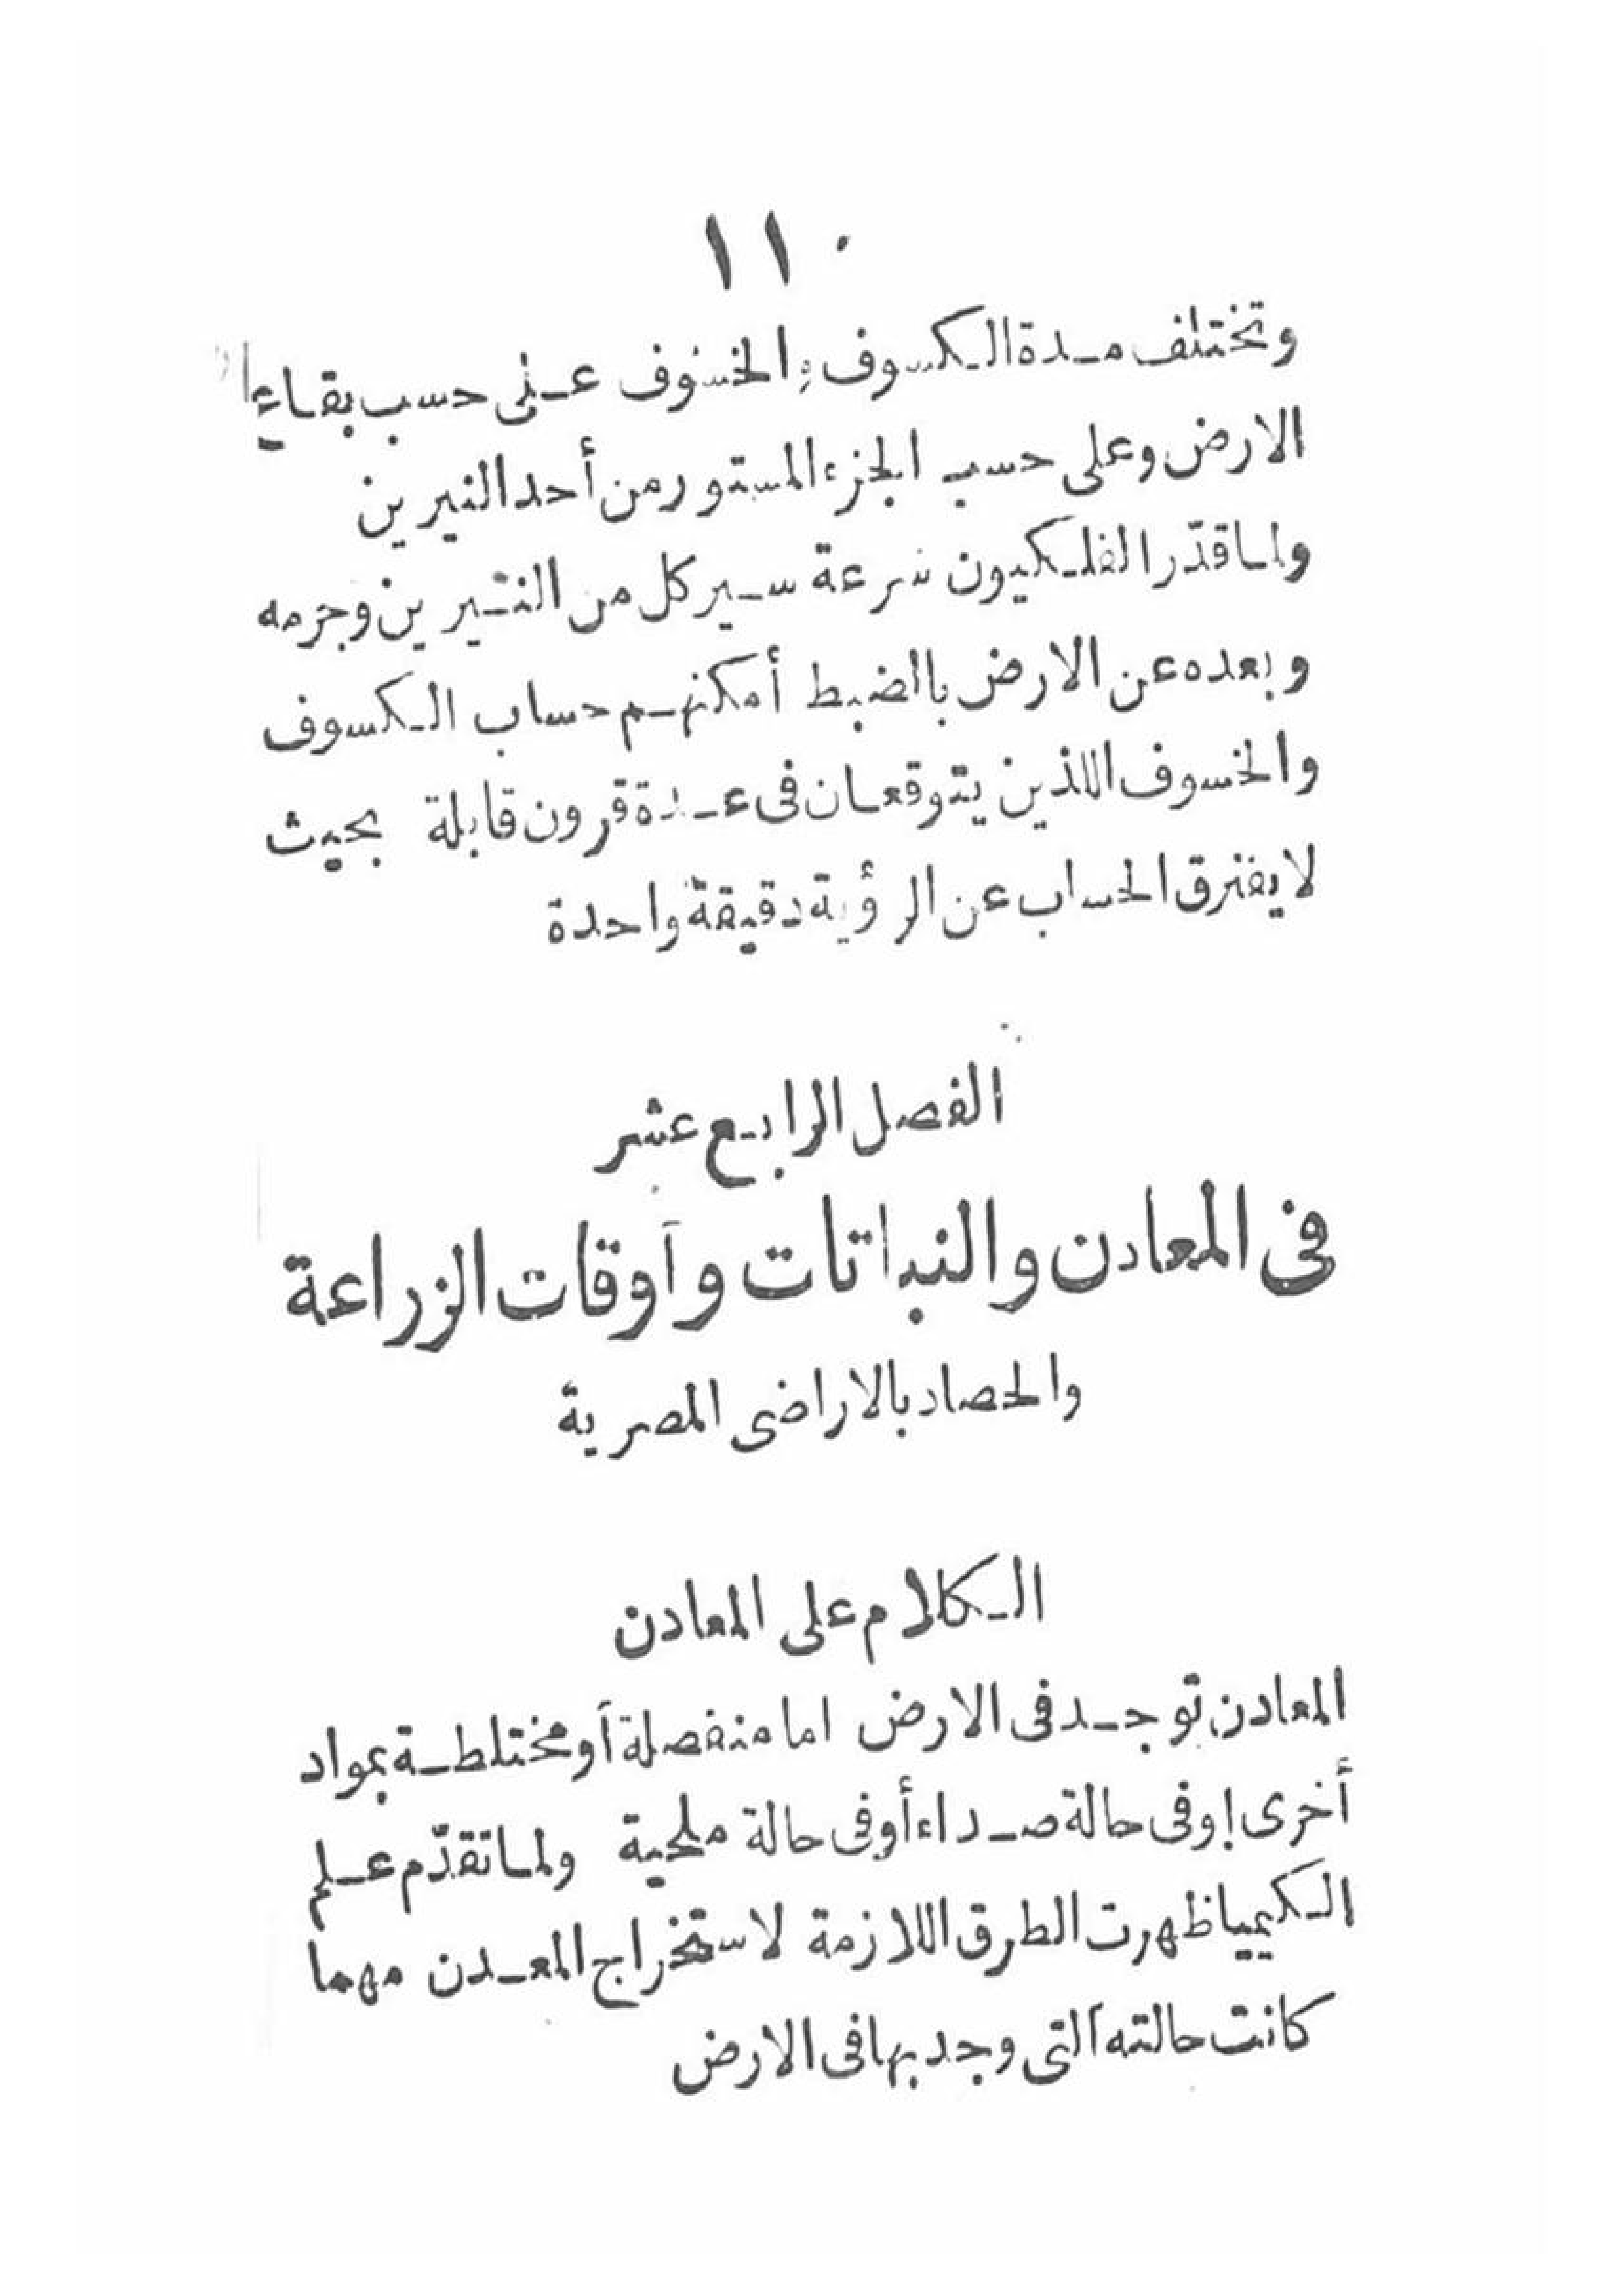 ١١٠
وتختلف مدة الكسوف والخسوف على حسب بقاء
الارض وعلى حسب الجزء المستور من أحد النيرين
ولما قدّر الفلكيون سرعة سير كل من النيرين وجرمه
وبعده عن الارض بالضبط أمكنهم حساب الكسوف
والخسوف اللذين يتوقعان فى عدة قرون قابلة بحيث
لا يفترق الحساب عن الرؤية دقيقة واحدة
الفصل الرابع عشر
فى المعادن والنباتات وأوقات الزراعة
والحصاد بالاراضى المصرية
الكلام على المعادن
المعادن توجد فى الارض اما منفصلة أو مختلطة بمواد
أخرى اوفى حالة صداء أوفى حالة ملحية ولما تقدّم علم
الكيميا ظهرت الطرق اللازمة لاستخراج المعدن مهما
كانت حالته التى وجد بها فى الارض